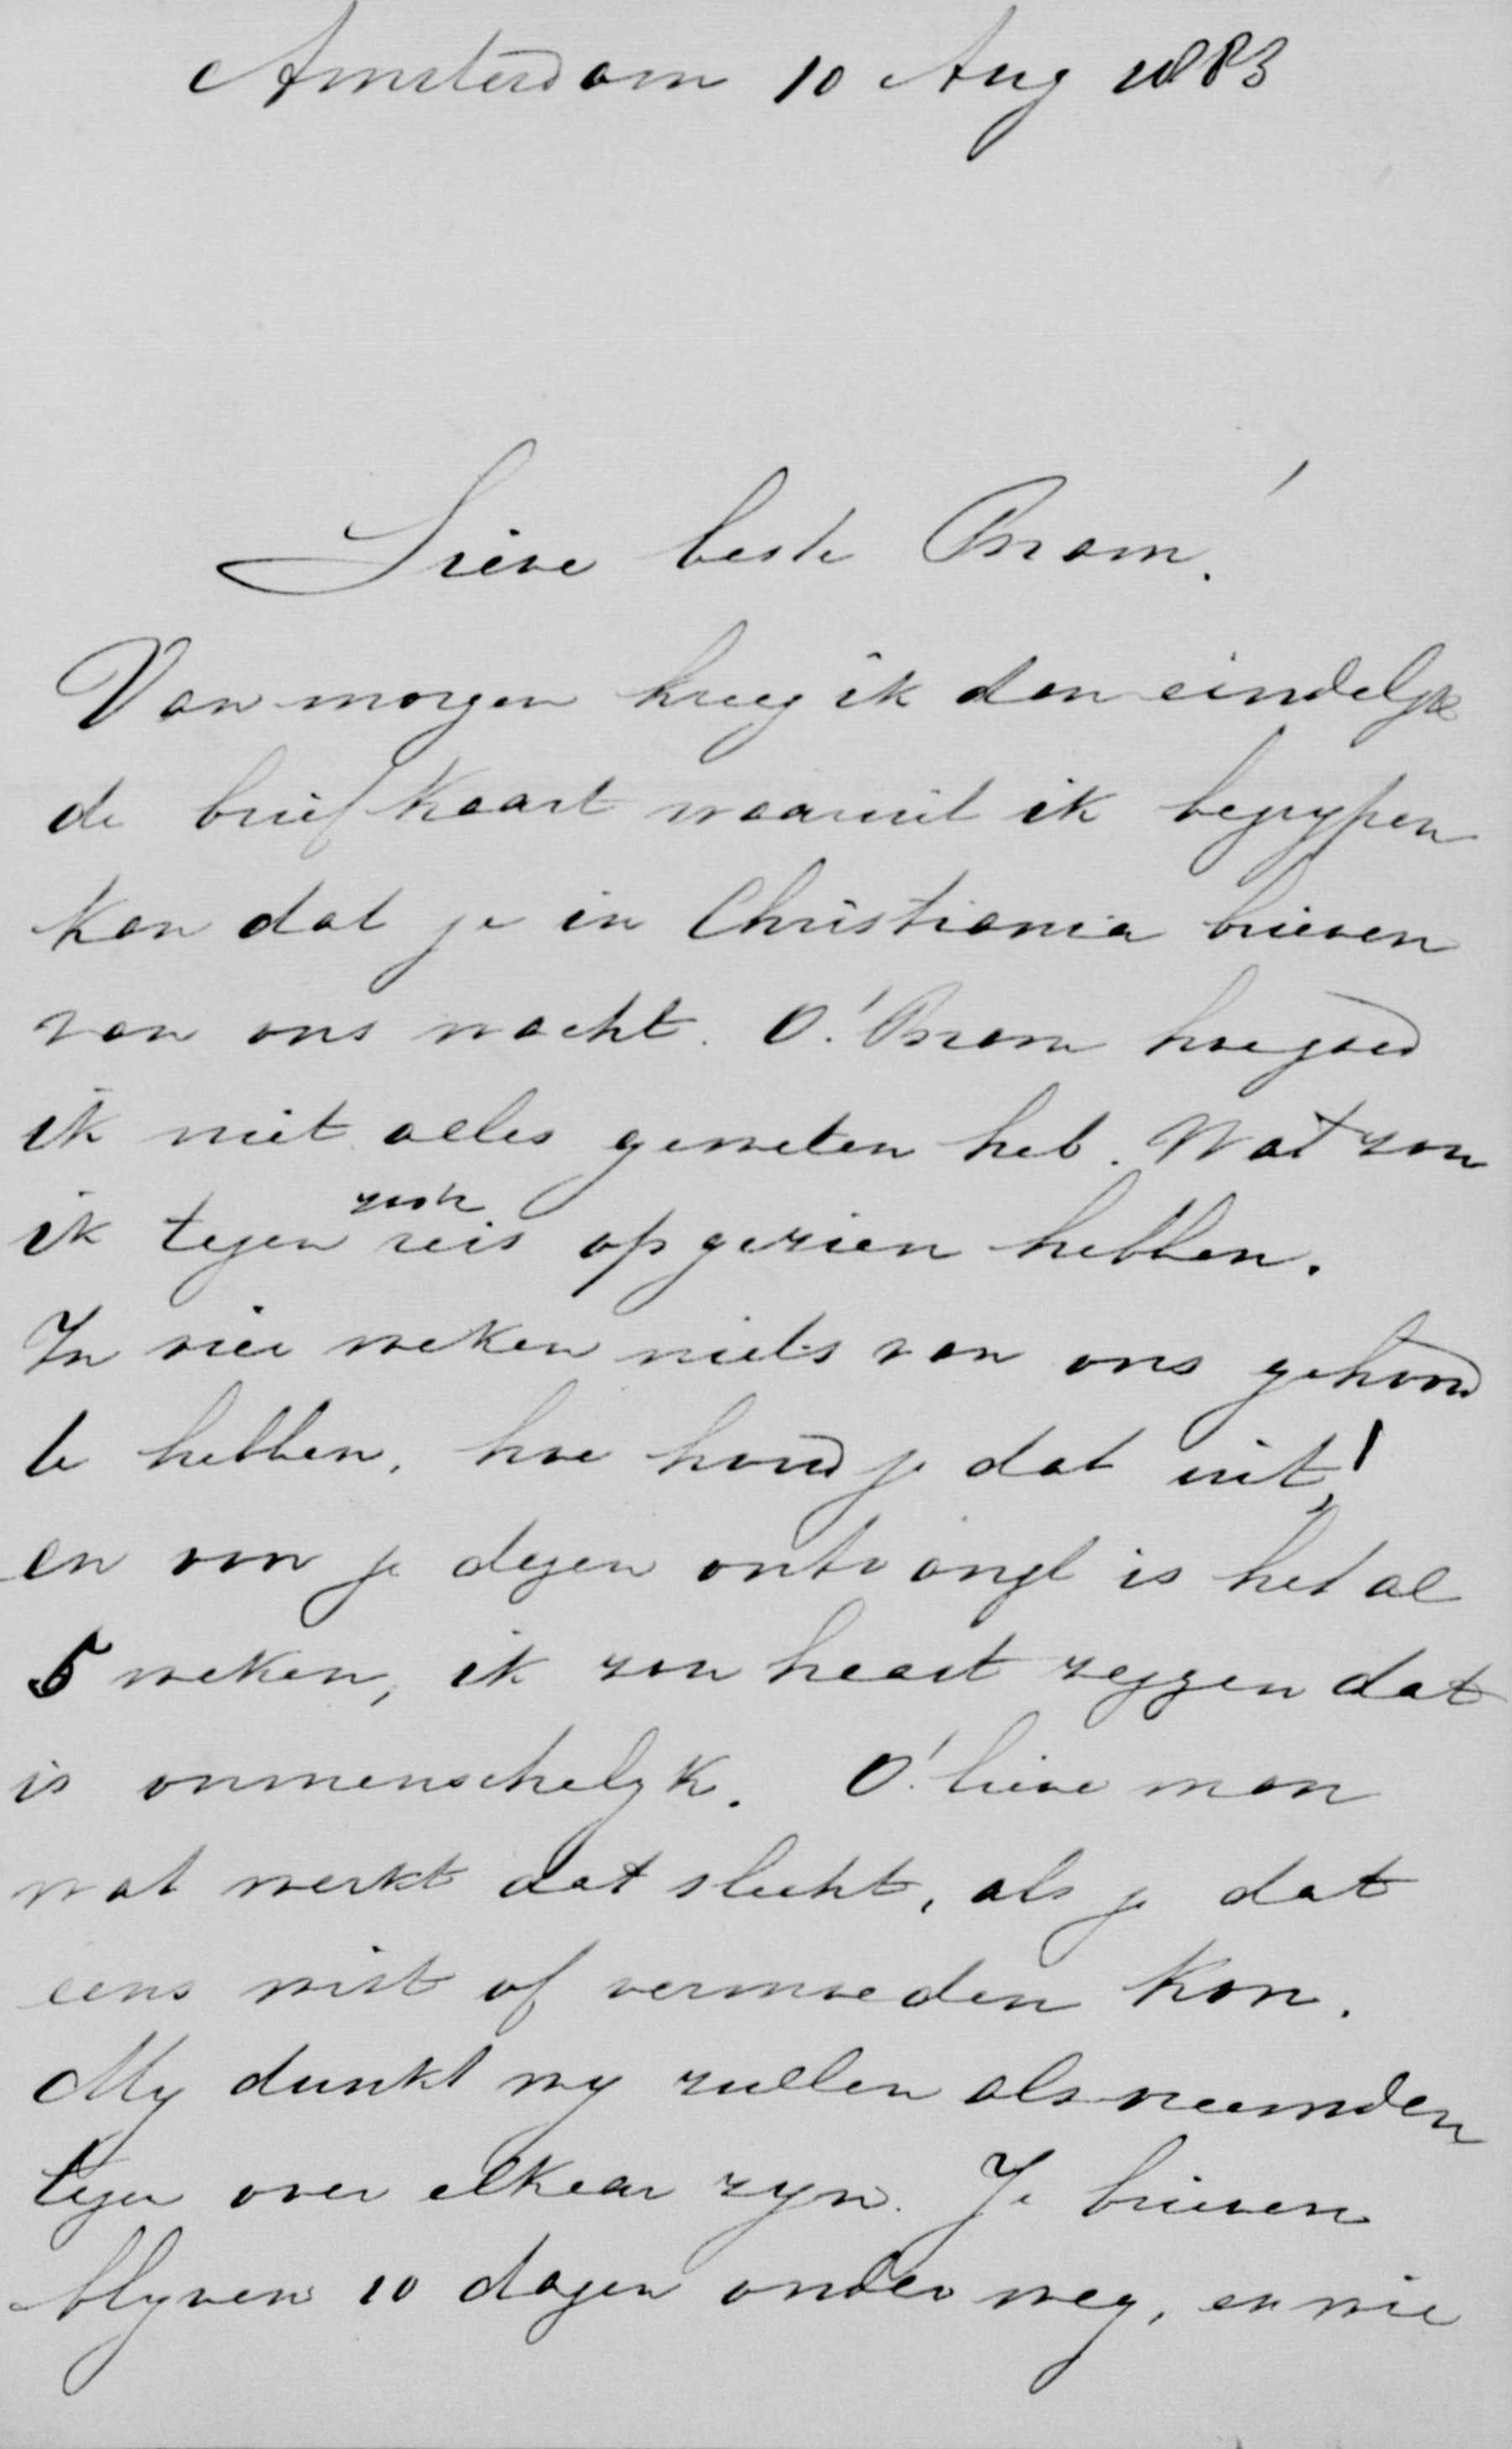 Amsterdam 10 Aug 1883
Lieve beste Bram!
Van morgen kreeg ik dan eindelyk
de briefkaart waaruit ik begrypen
kan dat je in Christiania brieven
van ons wacht. O! Bram hoe goed
ik niet alles geweten heb. Wat zou
ik tegen zoo'n reis op gezien hebben.
In vier weken niets van ons gehoord
te hebben, hoe houd je dat uit!
en voor je dezen ontvangt is het al
5 weken, ik zou haast zeggen dat
is onmenschelyk. O! lieve man
wat werkt dat slecht, als je dat
eens wist of vermoeden kon.
My dunkt wy zullen als vreemden
tegen over elkaar zyn. Je brieven
blyven 10 dagen onder weg, en wie